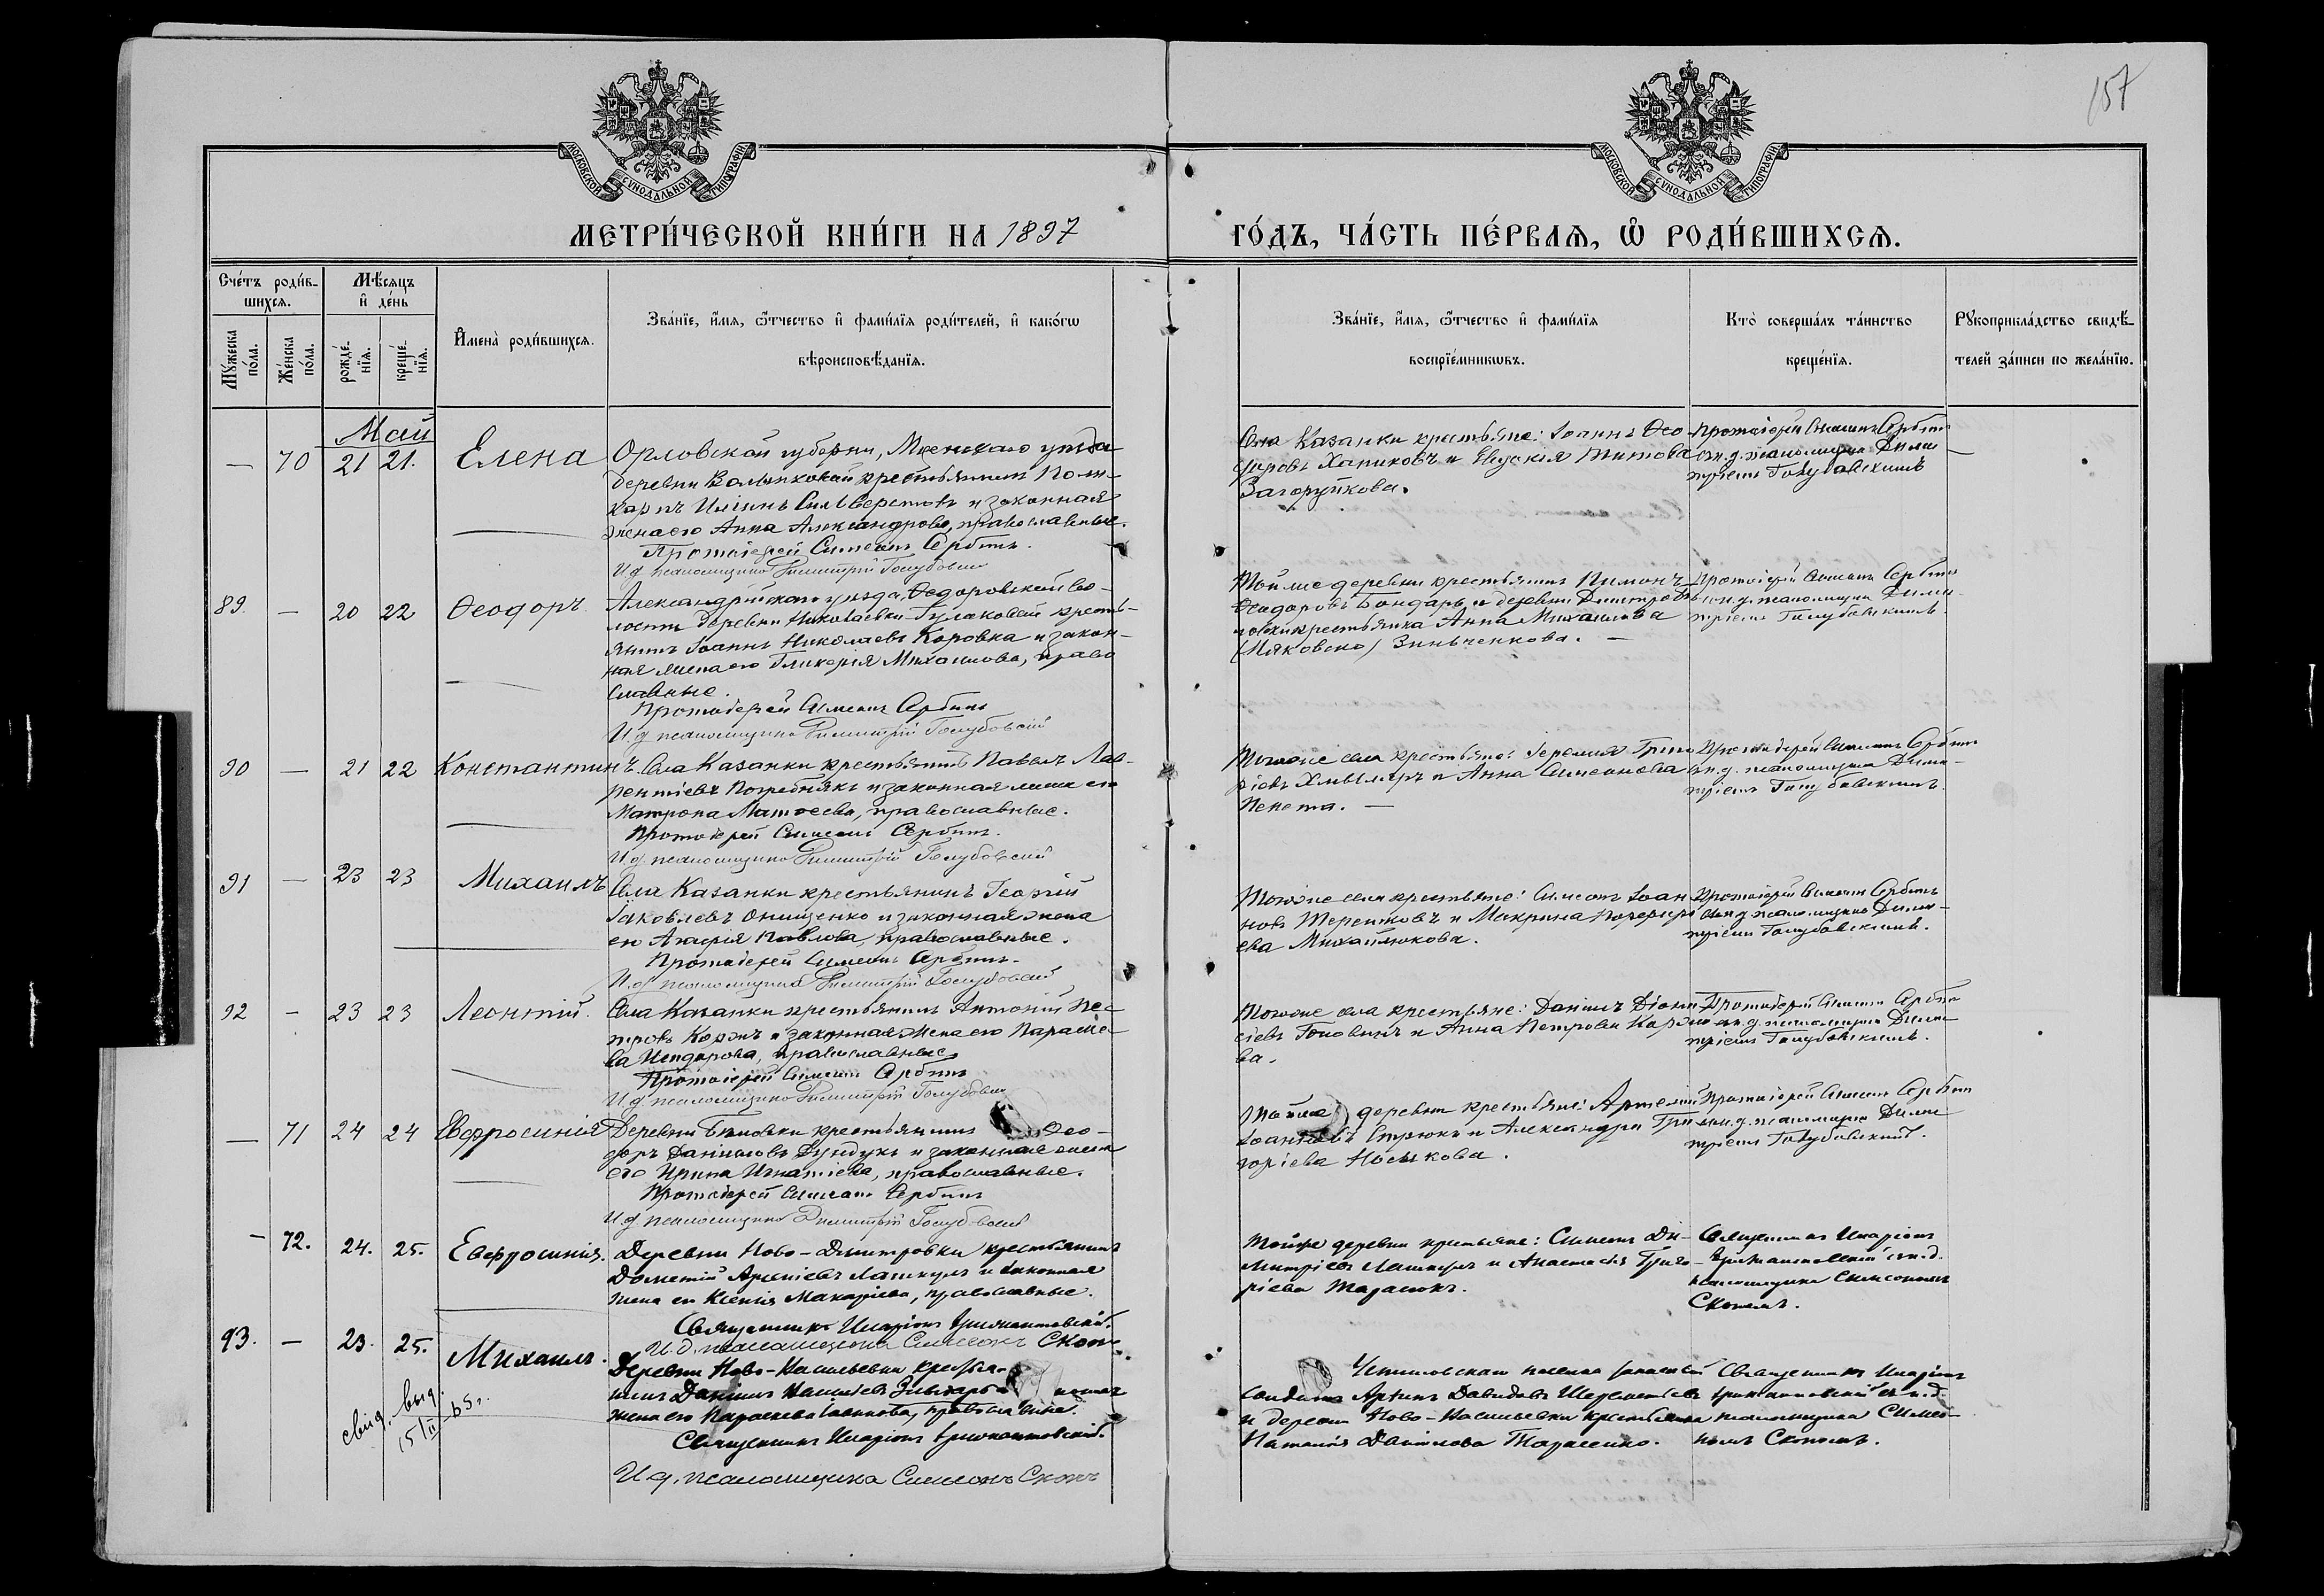 157
МОСКОВСКОЙ СѴНОДАЛЬНОЙ ТИПОГРАФІИ
МОСКОВСКОЙ СѴНОДАЛЬНОЙ ТИПОГРАФІИ
МЕТРИ́ЧЕСКОЙ КНИ́ГИ НА 1897
ГО́ДЪ, ЧА́СТЬ ПЕ́РВАѦ, Ѡ҆ РОДИ́ВШИХСѦ.
Сче́тъ роди́в-
шихсѧ.
Мѣ́сѧцъ
и҆ де́нь
Мꙋ́жеска по́ла.
Же́нска по́ла.
рожде́-нїѧ.
креще́-нїѧ.
И҆мена̀ роди́вшихсѧ.
Зва́нїе, и҆́мѧ, ѻ҆́тчество и҆ фами́лїѧ роди́телей, и҆ како́гѡ
вѣроисповѣ́данїѧ.
Зва́нїе, и҆́мѧ, ѻ҆́тчество и҆ фами́лїѧ
воспрїе́мникѡвъ.
Кто̀ соверша́лъ та́инство
креще́нїѧ.
Рꙋкоприкла́дство свидѣ́-
телей за́писи по жела́нїю.
Май
— 70 21 21. Елена
Орловской губернии, Мценскаго уѣзда
деревни крестьянинъ Поли-
карпъ Ильинъ и законная
жена его Анна Александрова, православные.
Протоіерей Симеонъ Сербинъ.
И.д. псаломщика Димитрій Голубовскій
Села Казанки крестьяне: Іоаннъ Ѳео-
доровъ Хапиковъ и Евдокія Титова
Загоруйкова.
Протоіерей Симеонъ Сербинъ
съ и.д. псаломщика Дими-
тріемъ Голубовскимъ
89. — 20 22 Ѳеодоръ
Александрійскаго уѣзда, Ѳедоровской во-
лости деревни Николаевки-Гулаковой кресть-
янинъ Іоаннъ Николаевъ Коровка и закон-
ная жена его Гликерія Михаилова, право
славные.
Протоіерей Симеонъ Сербинъ
И.д. псаломщика Димитрій Голубовскій
Той же деревни крестьянинъ Пимонъ
Ѳеодоровъ Бондарь и деревни Дмитров-
ки крестьянка Анна Михаилова
Зинченкова. —
Протоіерей Симеонъ Сербинъ
съ и.д. псаломщика Дими-
тріемъ Голубовскимъ
90 — 21 22 Константинъ.
Села Казанки крестьянинъ Павелъ Лав-
рентіевъ Погребнякъ и законная жена его
Матрона Матѳеева, православные.
Протоіерей Симеонъ Сербинъ.
И.д. псаломщика Димитрій Голубовскій
Того же села крестьяне: Іеремія Григо
ріевъ и Анна Симеонова
Пенета. —
Протоіерей Симеонъ Сербинъ
съ и.д. псаломщика Дими-
тріемъ Голубовскимъ.
91 — 23 23 Михаилъ
Села Казанки крестьянинъ Георгій
Іаковлевъ Онищенко и законная жена
его Агафія Павлова, православные.
Протоіерей Симеонъ Сербинъ.
И.д. псаломщика Димитрій Голубовскій
Того же села крестьяне: Симеонъ Іоан
новъ Терентьовъ и Макрина Порфирі
ева Михайлюкова.
Протоіерей Симеонъ Сербинъ
съ и.д. псаломщика Дими-
тріемъ Голубовскимъ.
92 — 23 23 Леонтій.
Села Казанки крестьянинъ Антоній Пе-
тровъ Коржъ и законная жена его Параске-
ва Исидорова, православные
Протоіерей Симеонъ Сербинъ
И.д. псаломщика Димитрій Голубовскій
Того же села крестьяне: Даніилъ Діони
сіевъ и Анна Петрова Коржо
ва.
Протоіерей Симеонъ Сербинъ
съ и.д. псаломщика Дими-
тріемъ Голубовскимъ.
— 71 24 24 Евфросинія
Деревни крестьянинъ Ѳео-
доръ Даніиловъ Дундукъ и законная жена
его Ирина Игнатіева, православные.
Протоіерей Симеонъ Сербинъ
И.д. псаломщика Димитрій Голубовскій
Той же деревни крестьяне: Артемій
Іоанновъ Стрюкъ и Александра Гри-
горіева Носикова.
Протоіерей Симеонъ Сербинъ
съ и.д. псаломщика Дими-
тріемъ Голубовскимъ.
— 72. 24. 25. Евфросинія.
Деревни Ново-Дмитровки крестьянинъ
Дометій Арсеніевъ и законная
жена его Ксенія Макаріева, православные.
Священникъ Иларіонъ
И.д. псаломщика Симеонъ Скопъ.
Той же деревни крестьяне: Симеонъ Ди-
митріевъ и Анастасія Григо-
ріева Тарасюкъ.
Священникъ Иларіонъ
съ и.д.
псаломщика Симеономъ
Скопомъ.
93. — 23. 25. Михаилъ.
свид. выд.
15/II-05 г.
Деревни Ново-Васильевки крестья-
нинъ Даніилъ
жена его Параскева православные.
Священникъ Иларіонъ
И.д. псаломщика Симеонъ Скопъ
солдатъ Давидовъ
и деревни Ново-Васильевки крестьянка
Наталія Даніилова Тарасенко.
Священникъ Иларіонъ
съ и.д.
псаломщика Симео-
номъ Скопомъ.